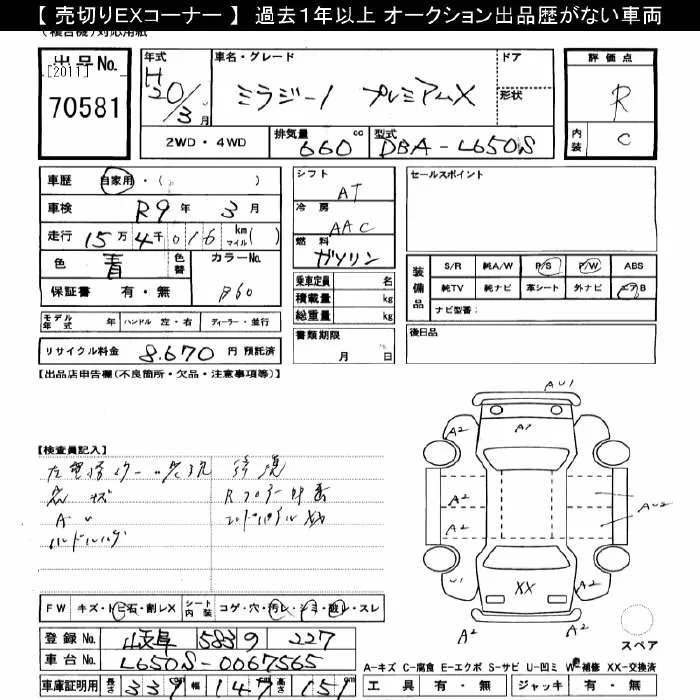 【 売切りEXコーナー 】 過去１年以上 オークション出品歴がない車両
(複合機)対応用紙
出品No.
[2011]
70581
年式
H20/3月
車名・グレード
ミラジーノ プレミアムX
ドア
形状
評価点
R
内装
C
2WD・4WD
排気量
660
cc
型式
DBA-L650S
車歴 自家用・( )
車検 R9年 3月
走行 15万4千016 km マイル( )
色 青 色替 カラーNo.
保証書 有・無 B60
モデル年式 年 ハンドル 左・右 ディーラー・並行
リサイクル料金 8.670 円 預託済
シフト
AT
冷房
AAC
燃料
ガソリン
乗車定員 名
積載量 kg
総重量 kg
書類期限
月 日
セールスポイント
装備品
S/R 純A/W P/S P/W ABS
純TV 純ナビ 革シート 外ナビ
ナビ型番:
後日品
【出品店申告欄(不良箇所・欠品・注意事項等)】
【検査員記入】
A〃
AU1
A2
A1
A2
A2
A2
AU2
U1
XX
A2
A2
A2
スペア
FW キズ・トビ石・割レX シート内装 コゲ・穴・汚レ・シミ・破レ・スレ
登録No. 岐阜 583 9 227
車台No. L650S-0067565
車庫証明用 長さ 339 cm 幅 147 cm 高さ 151 cm
A-キズ C-腐食 E-エクボ S-サビ U-凹ミ W-補修 XX-交換済
工具 有・無 ジャッキ 有・無